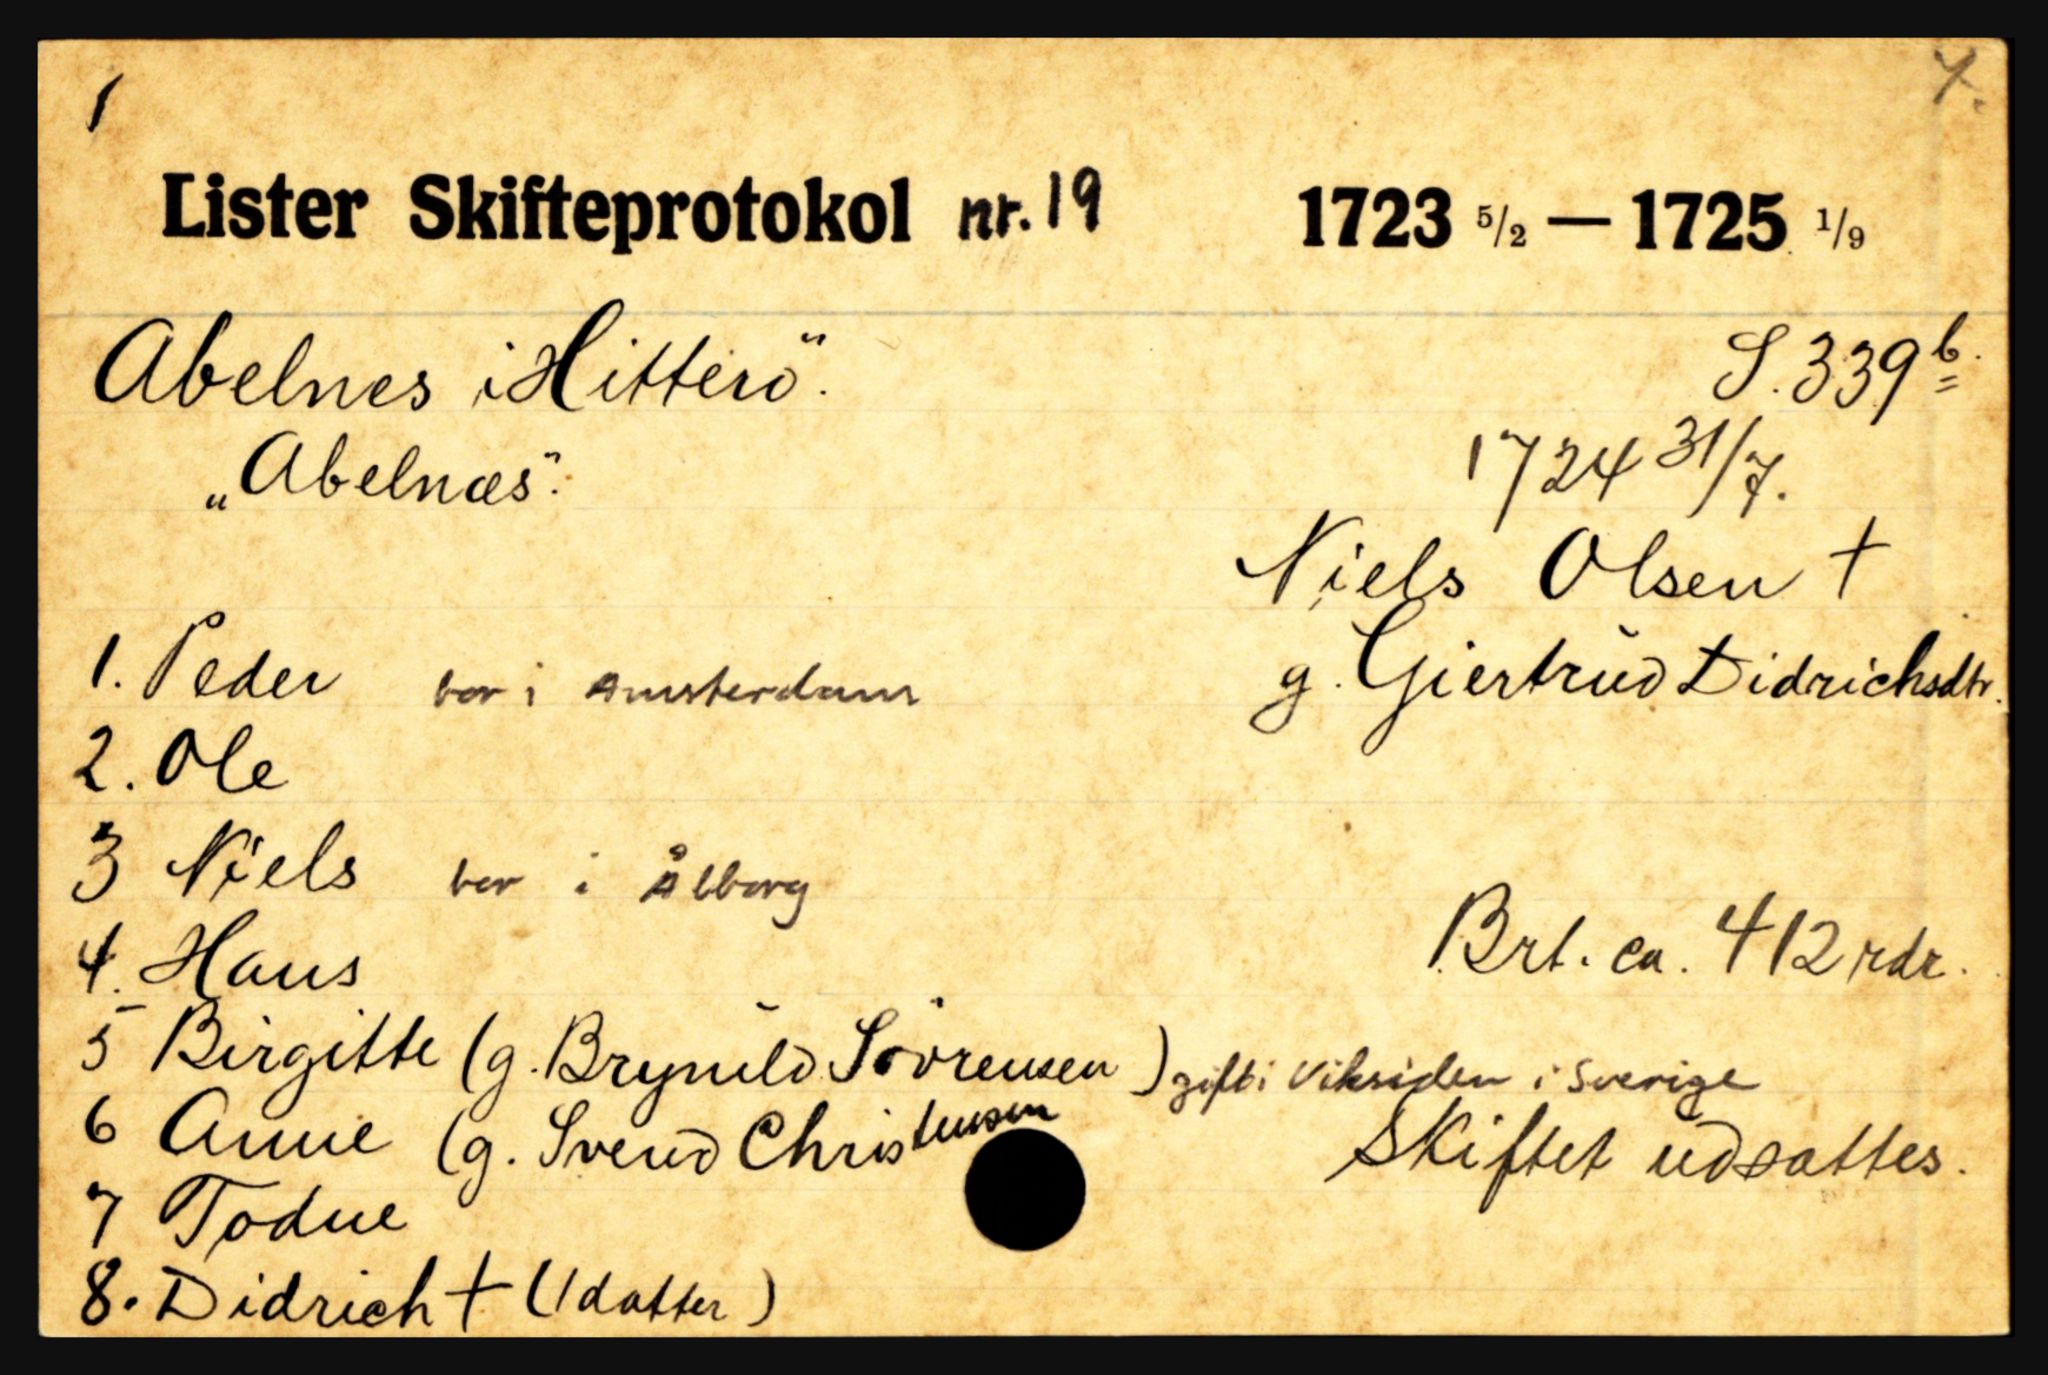 1 7.
Lister Skifteprotokol nr. 19 1723 5/2 — 1725 1/9
Abelnes i Hitterö". S. 339 b.
„Abelnæs". 1724 31/7.
Niels Olsen †
1. Peder bor i Amsterdam g. Giertrud Didrichsdtr.
2. Ole
3 Niels bor i Ålborg
4. Hans Brt. ca. 412 rdr.
5 Birgitte (g. Brynild Sörensen) gift i Viksiden i Sverige
6 Anne (g. Svend Christensen Skiftet udsattes.
7 Todne
8. Didrich † (1 datter)